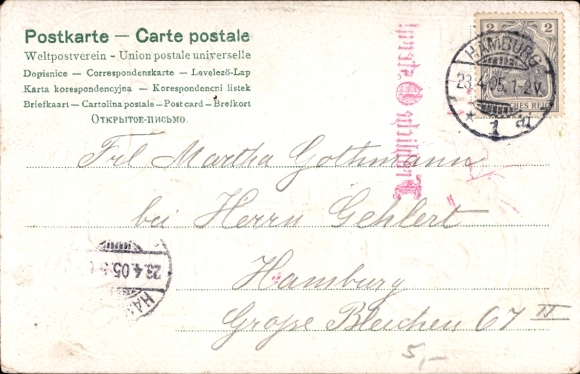 Postkarte — Carte postale
Weltpostverein - Union postale universelle
Dopisnice — Correspondenzkarte — Levelező-Lap
Karta korespondencyjna — Korespondencni listek
Briefkaart — Cartolina postale — Post card — Brefkort
Открытое-письмо
2 2
HAMBURG
23.4.05.1-2V.
1
Frl Martha Gothmann
bei Herrn Gehlert
Hamburg
Große Bleichen 67 II
23.4.05.
HA
5,-